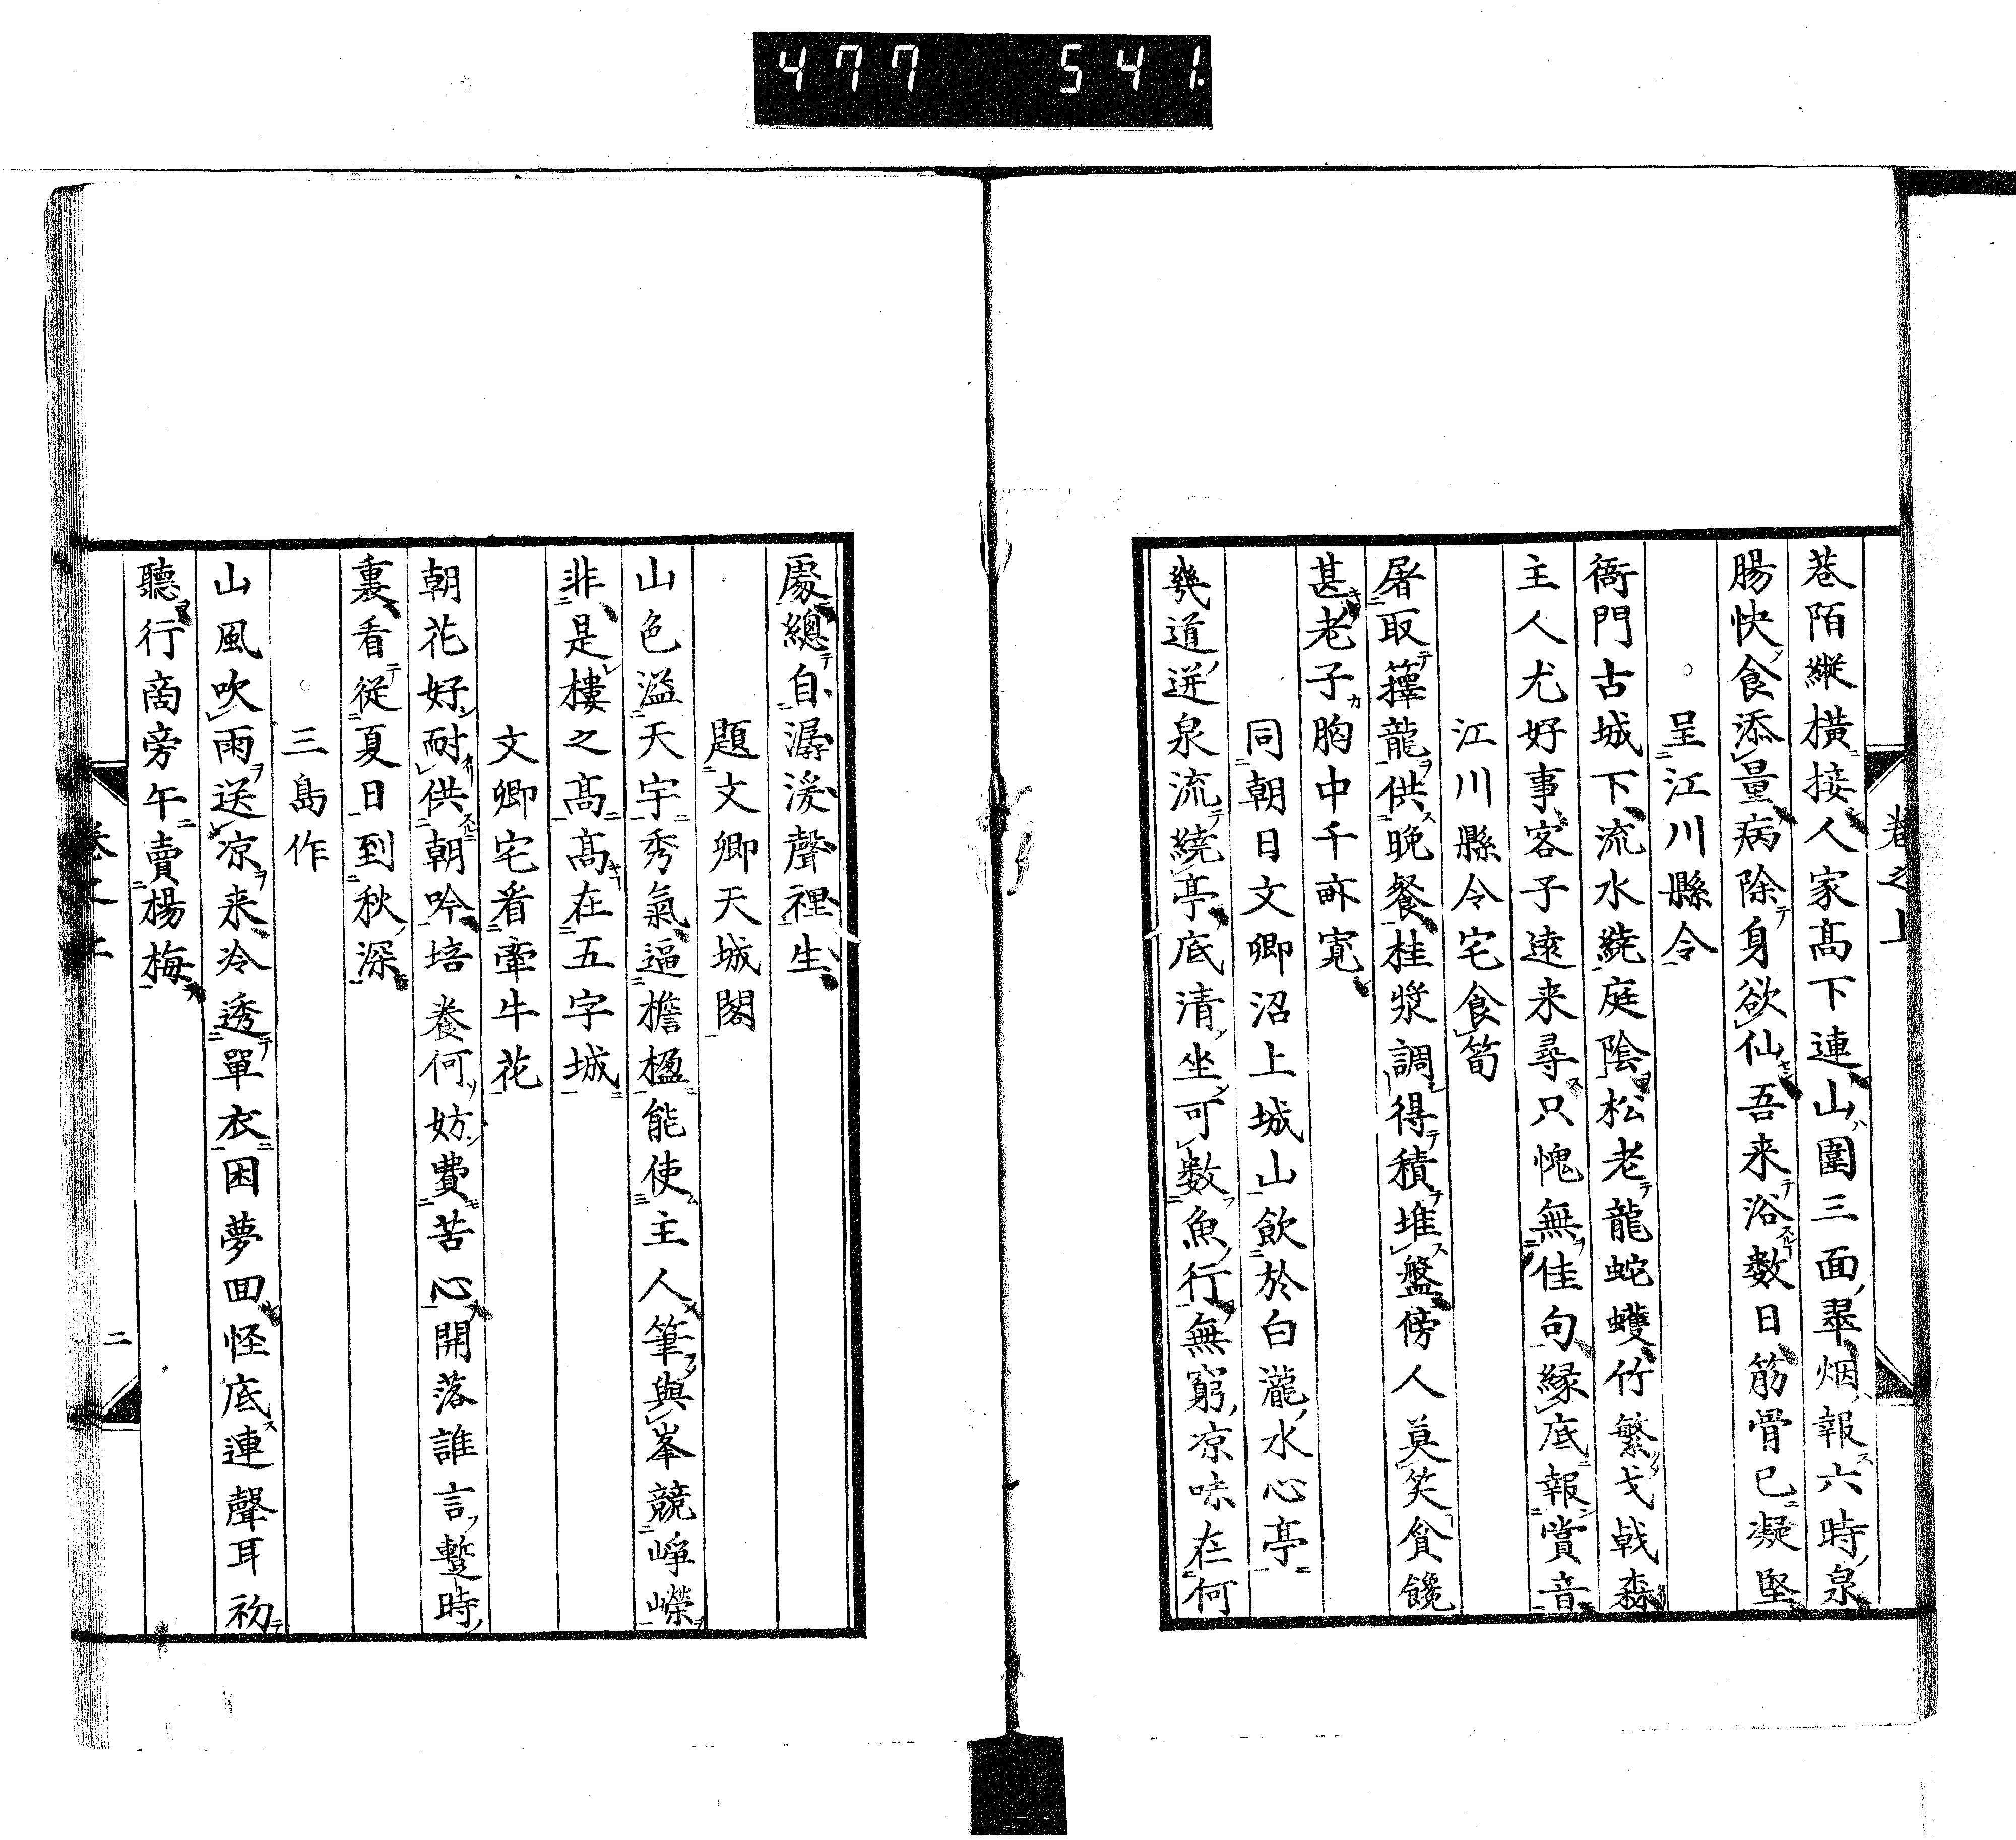 477 541.
卷之上
巷陌縱橫接人家高下連山圍三面翠烟報六時泉
腸快食添量病除身欲仙吾来浴數日筋骨已凝堅
呈江川縣令
衙門古城下流水繞庭陰松老龍蛇蠖竹繁戈戟森
主人尤好事客子遠来尋只愧無佳句縁底報賞音
江川縣令宅食筍
屠取籜龍供晚餐桂漿調得積堆盤傍人莫笑貧饞
甚老子胸中千畝寬
同朝日文卿沼上城山飲於白瀧水心亭
幾道迸泉流繞亭底清坐可數魚行無窮凉味在何
處總自潺湲聲裡生
題文卿天城閣
山色溢天宇秀氣逼檐楹能使主人筆與峯競崢嶸
非是樓之髙髙在五字城
文卿宅看牽牛花
朝花好耐供朝吟培養何妨費苦心開落誰言蹔時
裏看從夏日到秋深
三島作
山風吹雨送凉来冷透單衣困夢回怪底連聲耳初
聽行啇旁午賣楊梅
卷之上
二